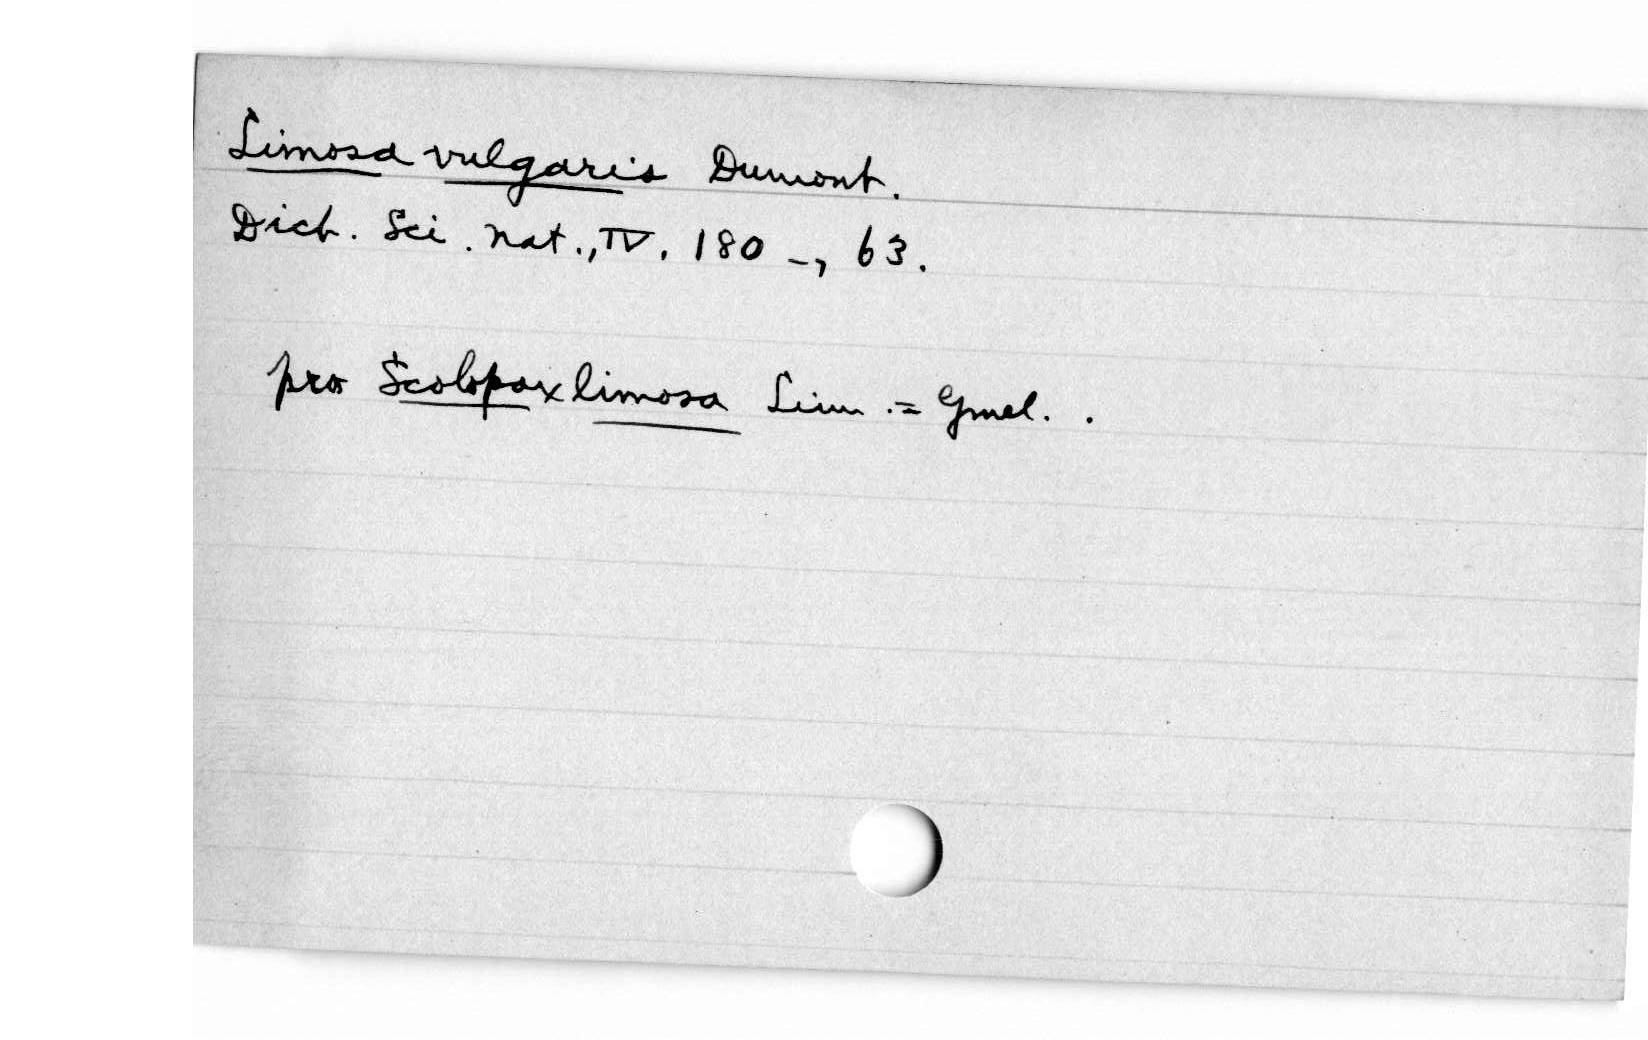 Limosa vulgaris Dumont.
Dict. Sci. Nat., IV. 180 -, 63.
pro Scolopax limosa Linn. = Gmel. .